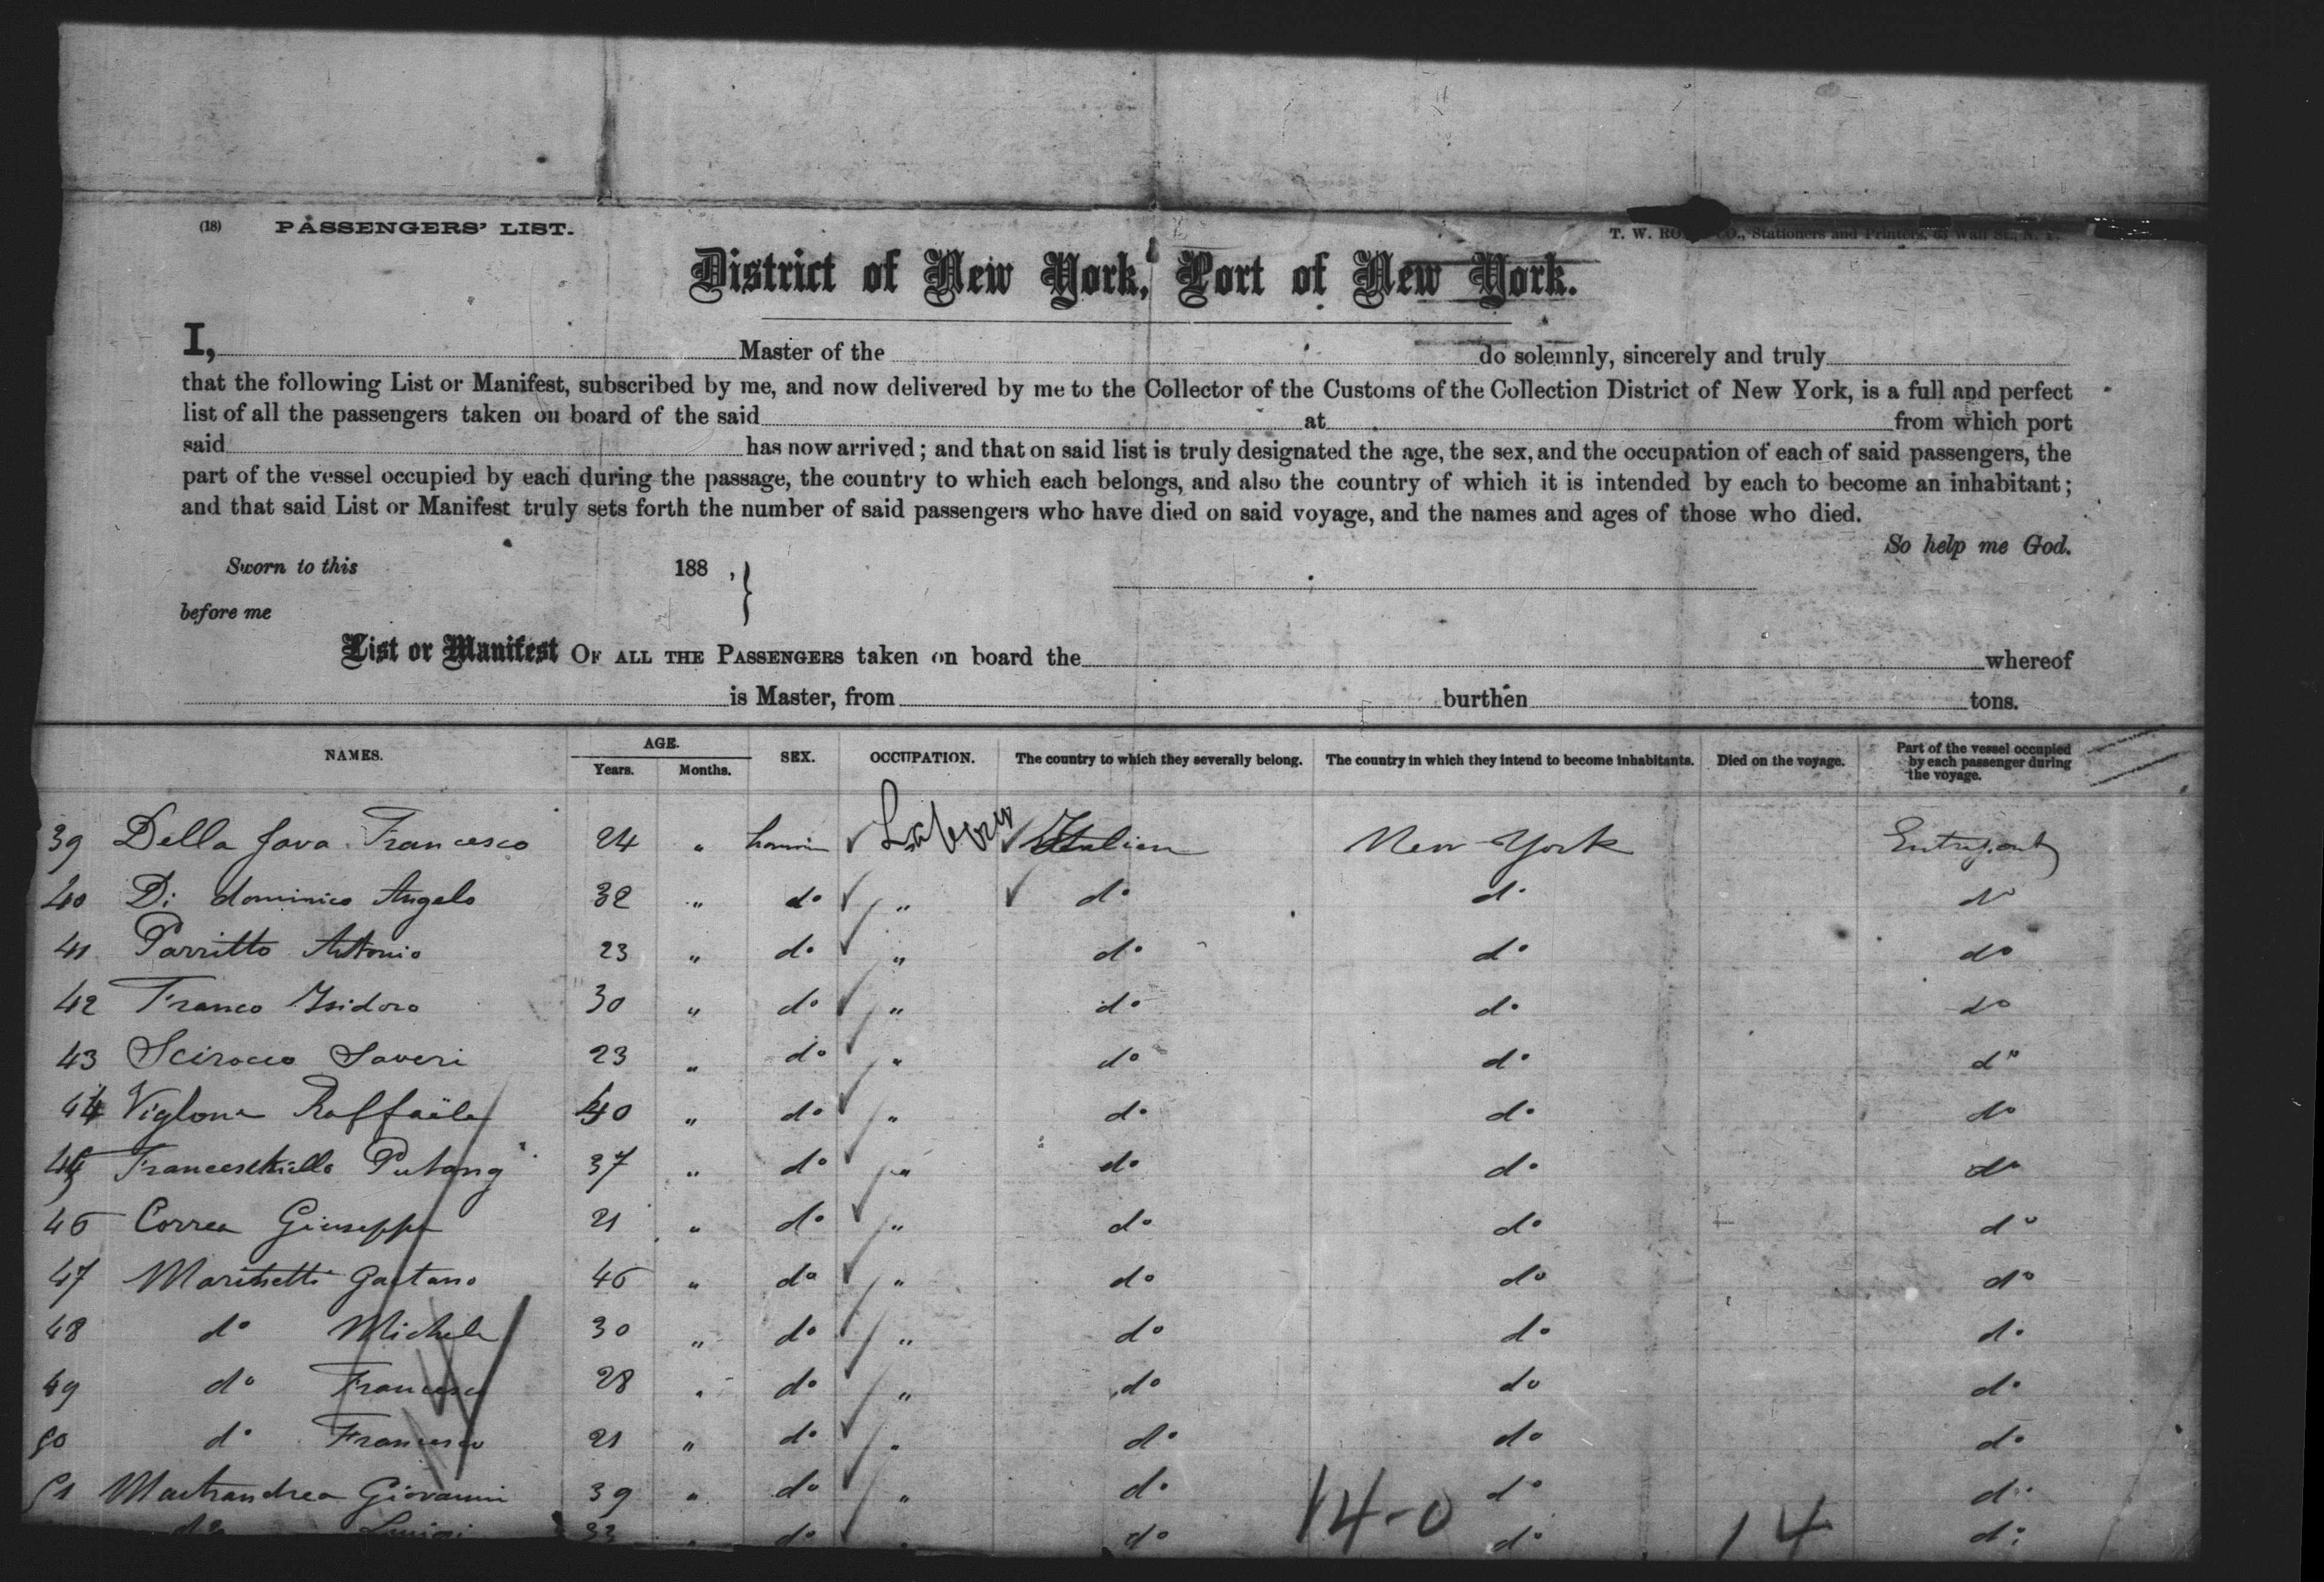 (18) PASSENGERS' LIST.
T. W. CO., Stationers and Printers, Wall St., N. Y.
District of New York, Port of New York.
I, Master of the do solemnly, sincerely and truly
that the following List or Manifest, subscribed by me, and now delivered by me to the Collector of the Customs of the Collection District of New York, is a full and perfect
list of all the passengers taken on board of the said at from which port
said has now arrived; and that on said list is truly designated the age, the sex, and the occupation of each of said passengers, the
part of the vessel occupied by each during the passage, the country to which each belongs, and also the country of which it is intended by each to become an inhabitant;
and that said List or Manifest truly sets forth the number of said passengers who have died on said voyage, and the names and ages of those who died.
So help me God.
Sworn to this 188 , }
before me
List or Manifest OF ALL THE PASSENGERS taken on board the whereof
is Master, from burthen tons.
NAMES. AGE. Years. Months. SEX. OCCUPATION. The country to which they severally belong. The country in which they intend to become inhabitants. Died on the voyage. Part of the vessel occupied by each passenger during the voyage.
39 Della Fava Francesco 24 " Laborer Italien New-York Entrepont
40 Di dominico Angelo 32 " do " do do do
41 Parritto Antonio 23 " do " do do do
42 Franco Isidoro 30 " do " do do do
43 Scirocco Saveri 23 " do " do do do
44 Viglone Raffaële 40 " do " do do do
45 37 " do " do do do
46 Correa Giuseppe 21 " do " do do do
47 Gaetano 46 " do " do do do
48 do Michele 30 " do " do do do
49 do Francesco 28 " do " do do do
50 do Francesco 21 " do " do do do
51 Mastrandrea Giovanni 39 " do " do do do
do Luigi 33 " do " do do do
14-0 14